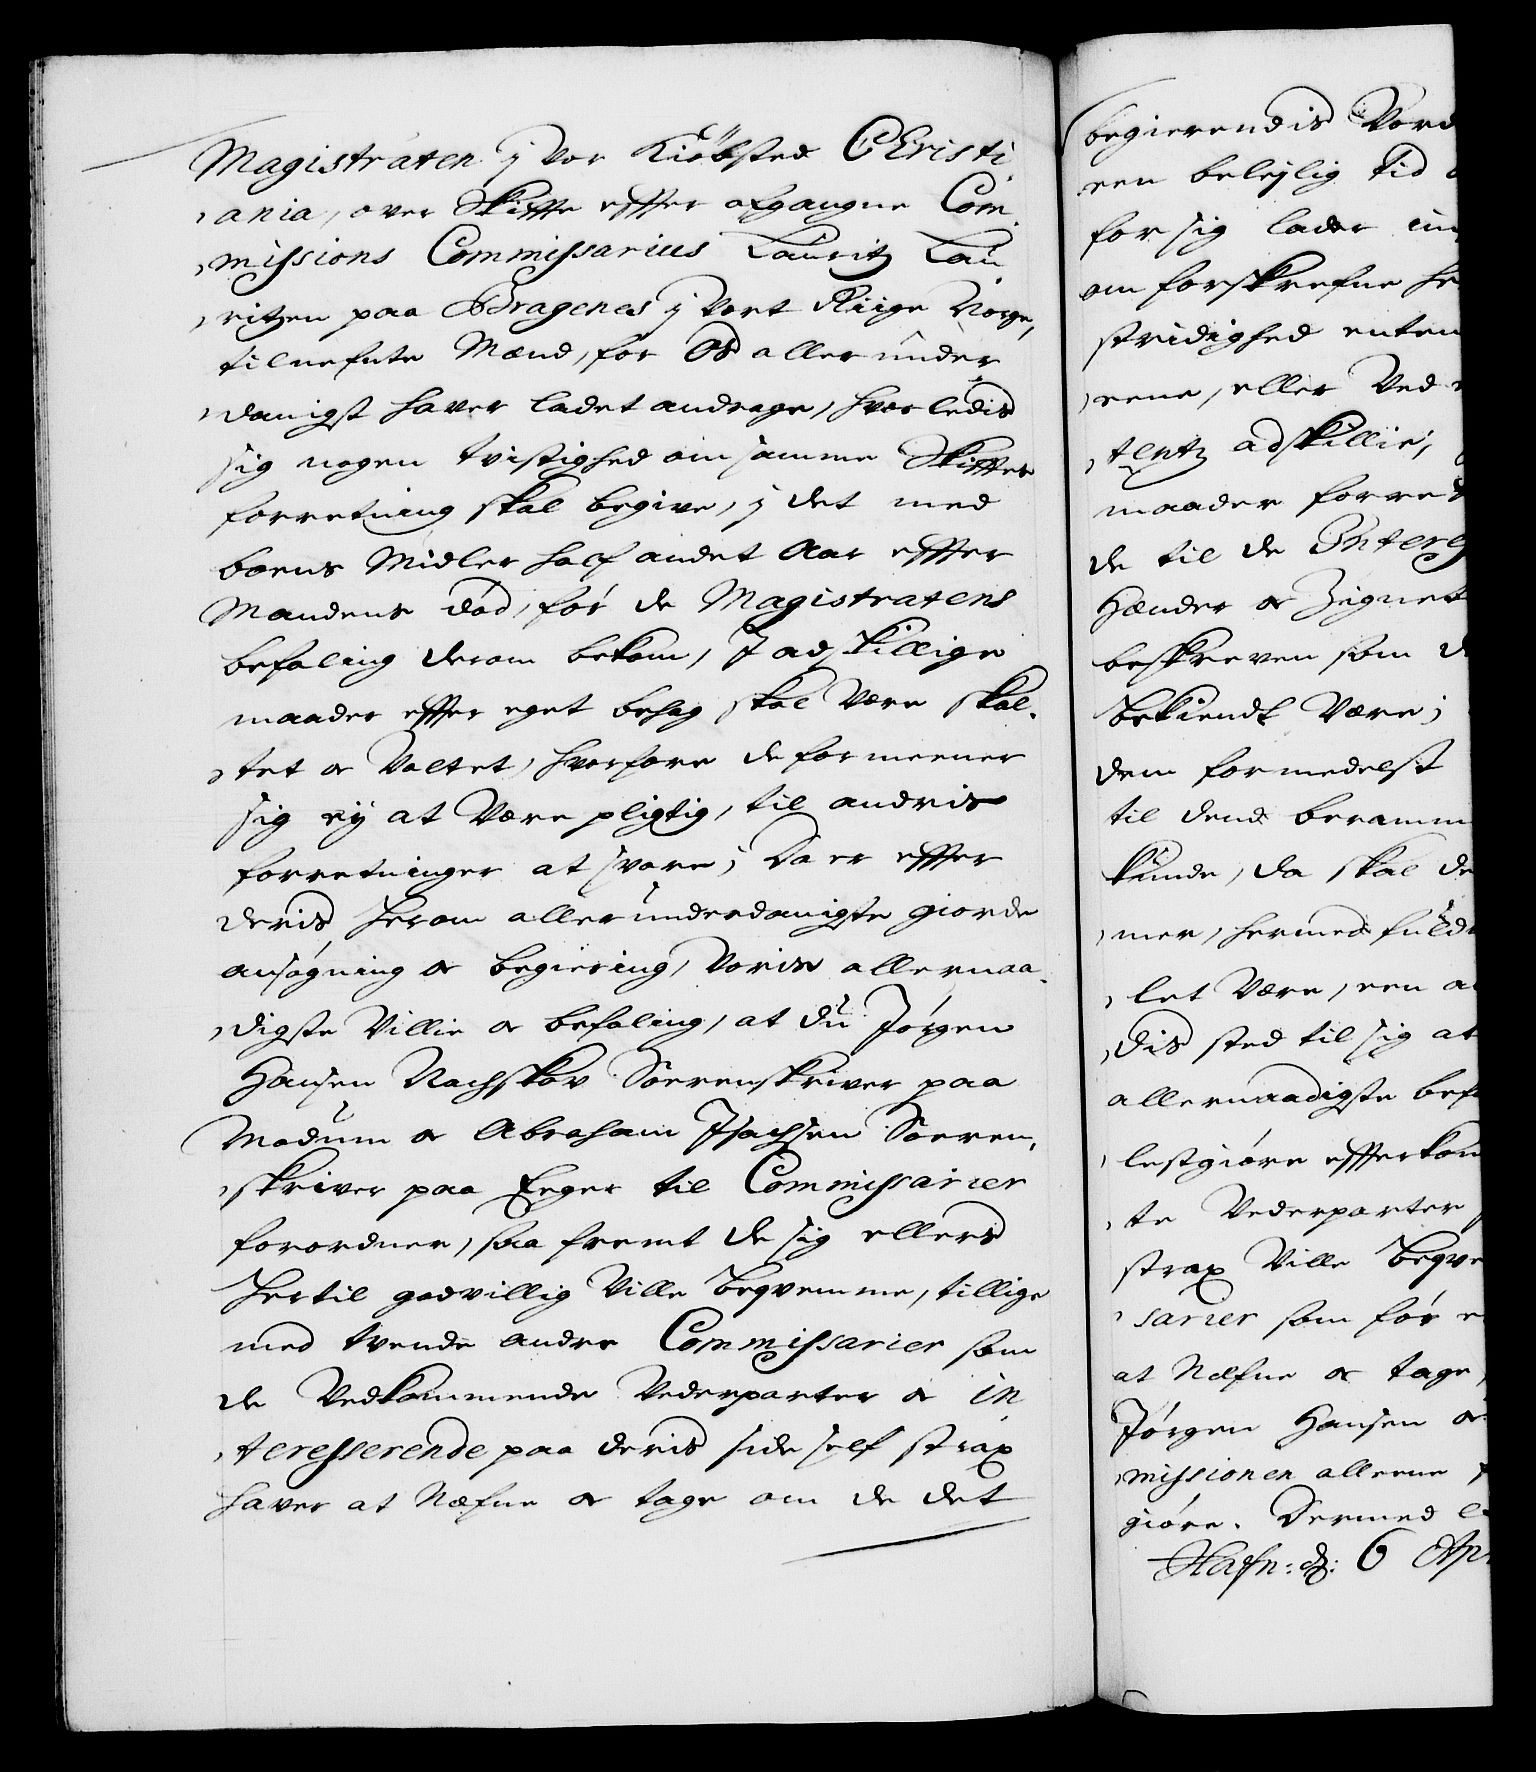 Magistraten j vor Kiöbsted Christi-
ania, over Skiffte effter afgangne Com-
missions Commissarius Lauritz Lau-
ritzen paa Bragenes j Vort Riige Norge,
tilnefnte Mænd, for Os allerunder-
danigst haver ladet andrage, hvorledis
sig nogen tvistighed om samme Skifftes
forretning skal begive, j det med
boens Midler half andet Aar effter
Mandens död, för de Magistratens
befaling derom bekom, J adskillige
maader effter eget behag skal Være skal-
tet oc Valtet, hvorfore de formeener
sig ey at Være pligtig, til andris
forretninger at svare; Da er effter
deris herom allerunderdanigste giorde
ansøgning oc begiering, Voris allernaa-
digste Villie oc befaling, at du Jörgen
Hansen Nachskov Sorenskriver paa
Modum oc Abraham Jsachsen Soren-
skriver paa Eeger til Commissarier
forordner, saa fremt de sig ellers
hertil godvillig Ville begvemme, tillige
med tvende andre Commissarier som
de Vedkommende Vederparter oc in-
teresserende paa deris side self strax
haver at Næfne oc tage om de det
begierendis Vord
een belejlig tid
for sig lader in
om forskrefne he
stridighed enten
eene, eller Ved
tentz adskillie,
maader forret
de til de Interess
Hænder oc Zignet
beskreven som d
bekiendt Være;
dem formedelst
til dend beramm
kunde, da skal de
mer, hermed fuld
let Være, een a
dis sted til sig at
allernaadigste bef
lestgiöre effterkom
te Vederparter
strax Ville begve
sarier som för e
at Næfne oc tage,
Jörgen Hansen oc
missionen alleene
giöre. Dermed
Hafn: d: 6 Apr